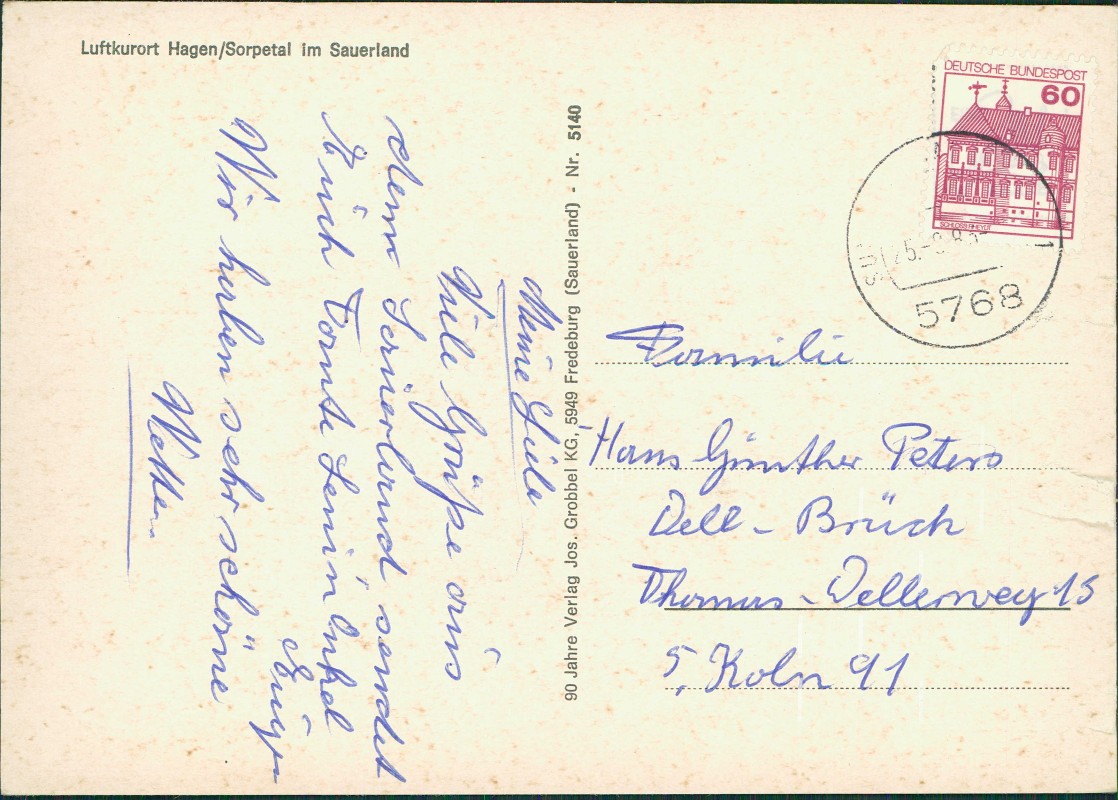 Luftkurort Hagen/Sorpetal im Sauerland
Meine Liebe
Viele Grüße aus
dem Sauerland sendet
Euch Tante Leni Onkel
Wir haben sehr schöne
Wetter
90 Jahre Verlag Jos. Grobbel KG, 5949 Fredeburg (Sauerland) - Nr. 5140
DEUTSCHE BUNDESPOST
60
SCHLOSS RHEYDT
5768
Familie
Hans Günther Peters
Dell - Brück
Thomas - Dellerweg 15
5, Koln 91